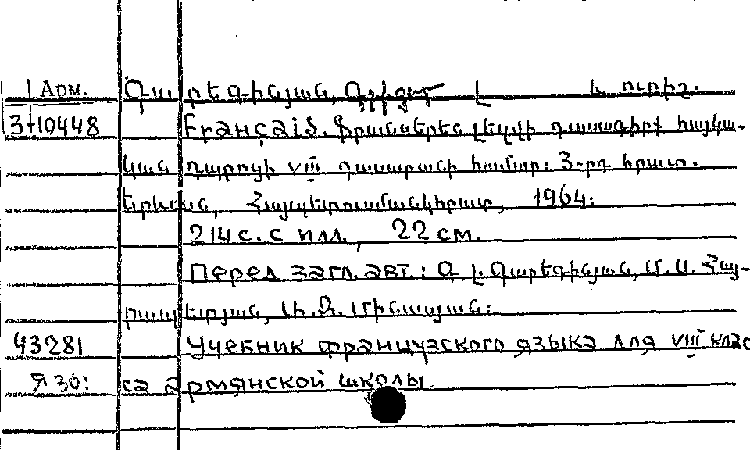 Арм. Գարեգինյան, Լ և ուրիշ.
3+10448 Français. Ֆրանսերեն լեզվի դասագիրք հայկա-
կան դպրոցի VIII դասարանի համար: 3-րդ հրատ.
Երևան, Հայպետուսմանկհրատ, 1964:
214 с. с илл., 22 см.
Перед загл. авт.: Գ. Լ. Գարեգինյան, Մ. Ս. Հայ-
րապետյան, Մինասյան:
43281 Учебник французского языка для VIII клас
Я 30: са армянской школы